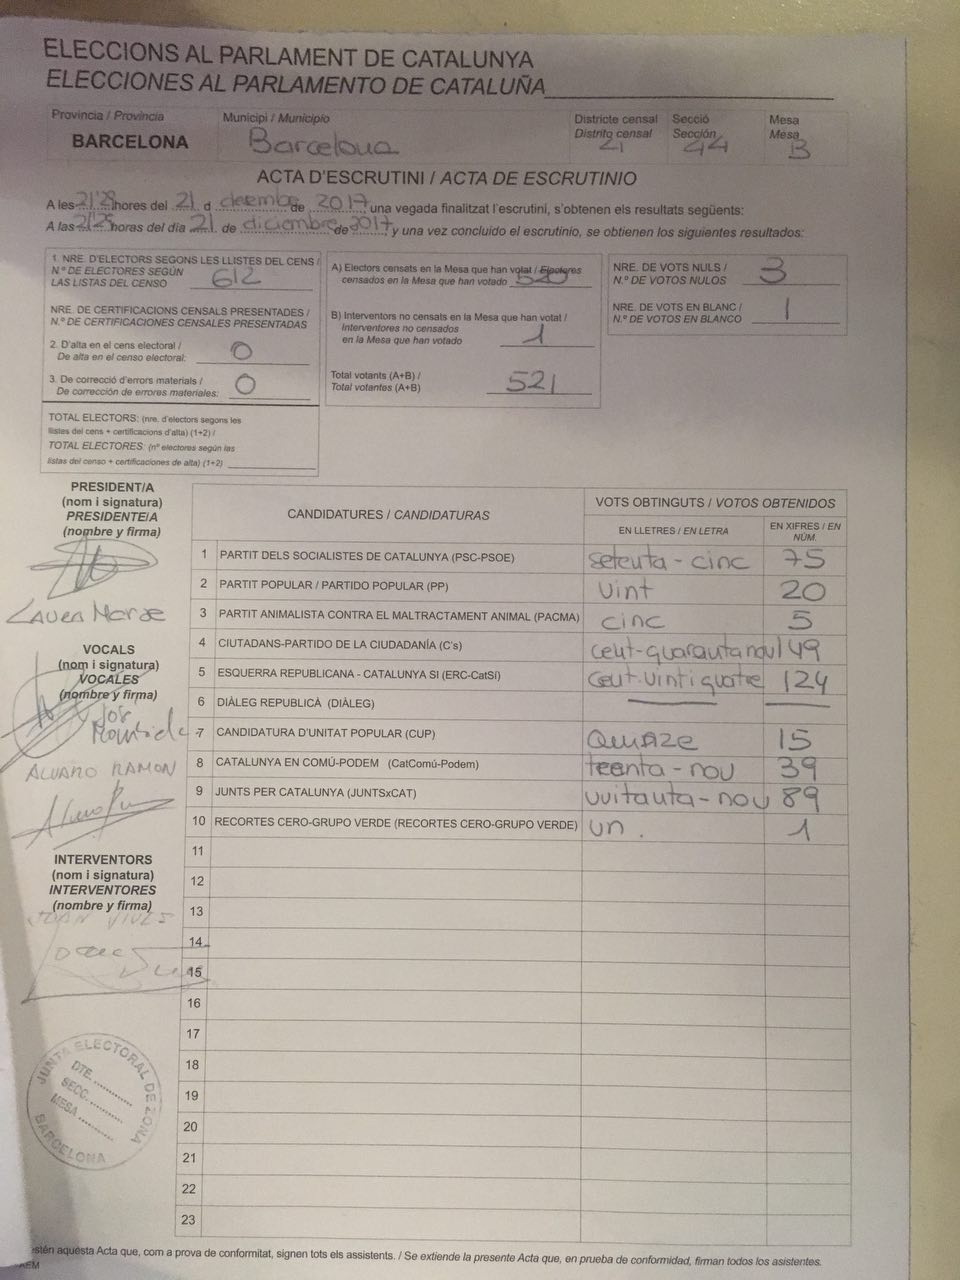 ELECCIONS AL PARLAMENT DE CATALUNYA
ELECCIONES AL PARLAMENTO DE CATALUÑA
Província / Provincia
BARCELONA
Municipi / Municipio
Barcelona
Districte censal
Distrito censal
21
Secció
Sección
44
Mesa
Mesa
B
ACTA D'ESCRUTINI / ACTA DE ESCRUTINIO
A les 21'28 hores del 21 d desembre de 2017 una vegada finalitzat l'escrutini, s'obtenen els resultats següents:
A las 21:28 horas del día 21 de diciembre de 2017 y una vez concluido el escrutinio, se obtienen los siguientes resultados:
1. NRE. D'ELECTORS SEGONS LES LLISTES DEL CENS /
N.º DE ELECTORES SEGÚN
LAS LISTAS DEL CENSO 612
NRE. DE CERTIFICACIONS CENSALS PRESENTADES /
N.º DE CERTIFICACIONES CENSALES PRESENTADAS
2. D'alta en el cens electoral /
De alta en el censo electoral: 0
3. De correcció d'errors materials /
De corrección de errores materiales: 0
TOTAL ELECTORS: (nre. d'electors segons les
llistes del cens + certificacions d'alta) (1+2) /
TOTAL ELECTORES: (nº electores según las
listas del censo + certificaciones de alta) (1+2)
A) Electors censats en la Mesa que han votat / Electores
censados en la Mesa que han votado 520
B) Interventors no censats en la Mesa que han votat /
Interventores no censados
en la Mesa que han votado 1
Total votants (A+B) /
Total votantes (A+B) 521
NRE. DE VOTS NULS /
N.º DE VOTOS NULOS 3
NRE. DE VOTS EN BLANC /
N.º DE VOTOS EN BLANCO 1
PRESIDENT/A
(nom i signatura)
PRESIDENTE/A
(nombre y firma)
VOCALS
(nom i signatura)
VOCALES
(nombre y firma)
ALVARO RAMON
INTERVENTORS
(nom i signatura)
INTERVENTORES
(nombre y firma)
JOAN VIVES
JUNTA ELECTORAL DE ZONA
DTE.
SECC.
MESA
BARCELONA
CANDIDATURES / CANDIDATURAS
VOTS OBTINGUTS / VOTOS OBTENIDOS
EN LLETRES / EN LETRA
EN XIFRES / EN
NÚM.
1 PARTIT DELS SOCIALISTES DE CATALUNYA (PSC-PSOE) setenta-cinc 75
2 PARTIT POPULAR / PARTIDO POPULAR (PP) vint 20
3 PARTIT ANIMALISTA CONTRA EL MALTRACTAMENT ANIMAL (PACMA) cinc 5
4 CIUTADANS-PARTIDO DE LA CIUDADANÍA (C's) cent-quaranta nou 149
5 ESQUERRA REPUBLICANA - CATALUNYA SI (ERC-CatSí) cent vint i quatre 124
6 DIÀLEG REPUBLICÀ (DIÀLEG)
7 CANDIDATURA D'UNITAT POPULAR (CUP) Quinze 15
8 CATALUNYA EN COMÚ-PODEM (CatComú-Podem) trenta-nou 39
9 JUNTS PER CATALUNYA (JUNTSxCAT) vuitanta-nou 89
10 RECORTES CERO-GRUPO VERDE (RECORTES CERO-GRUPO VERDE) un. 1
11
12
13
14
15
16
17
18
19
20
21
22
23
estén aquesta Acta que, com a prova de conformitat, signen tots els assistents. / Se extiende la presente Acta que, en prueba de conformidad, firman todos los asistentes.